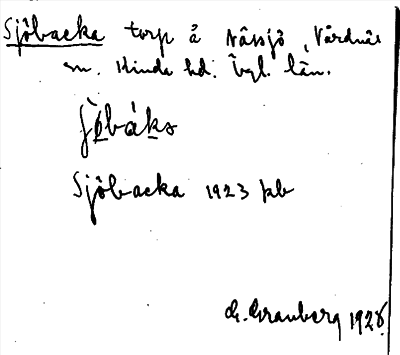 Sjöbacka torp å Nässjö, Vårdnäs
sn. Kinda hd. Ögl. län.
Sjöbacka 1923 jkb
G. Granberg 1928.